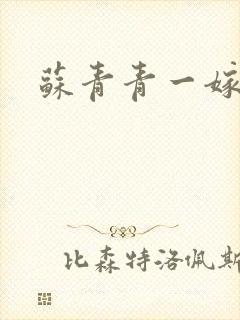 蘇青青一嫁
比森特洛佩斯